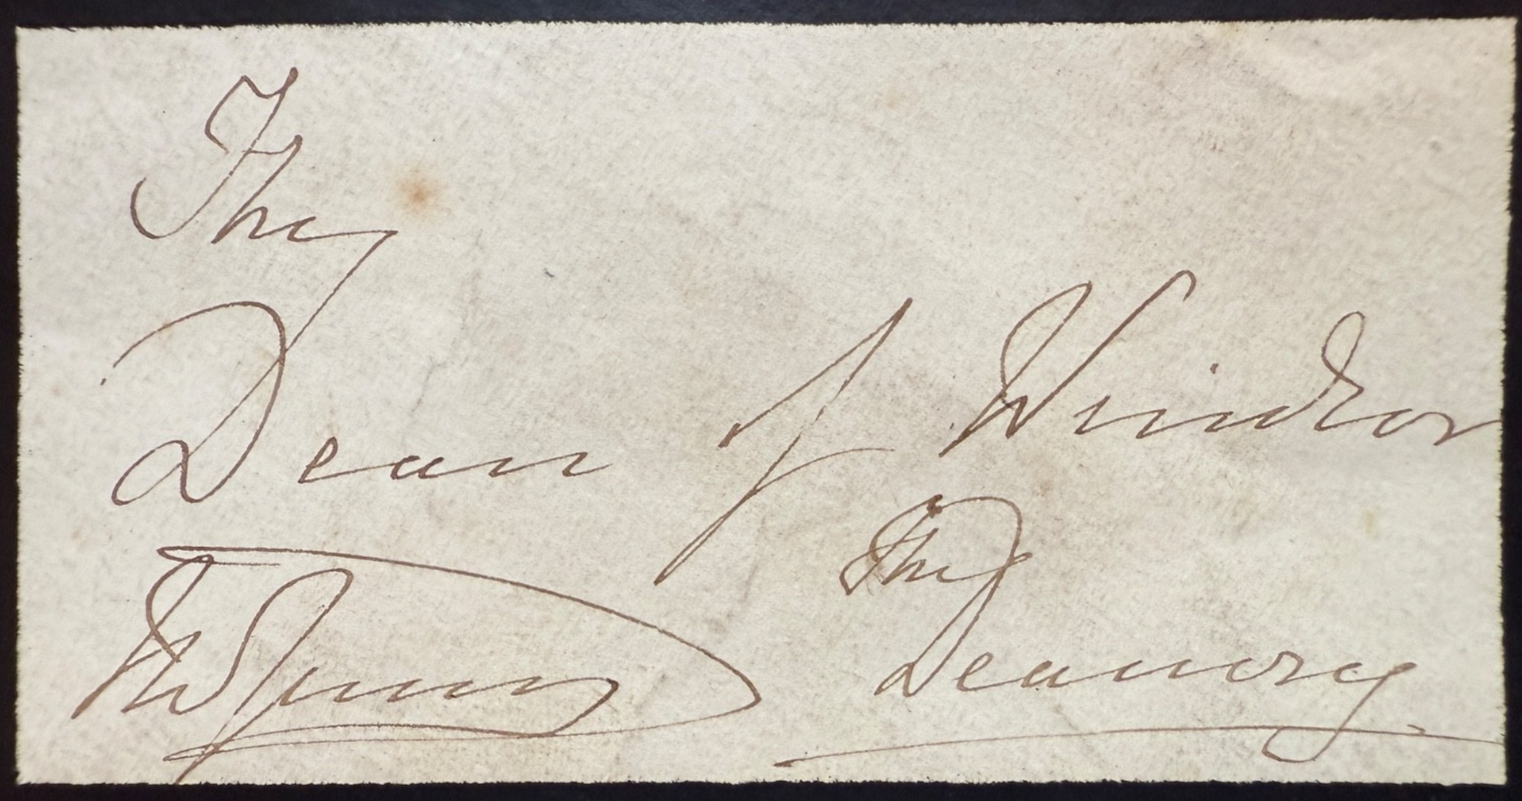 The
Dean of Windsor
The
Deanery